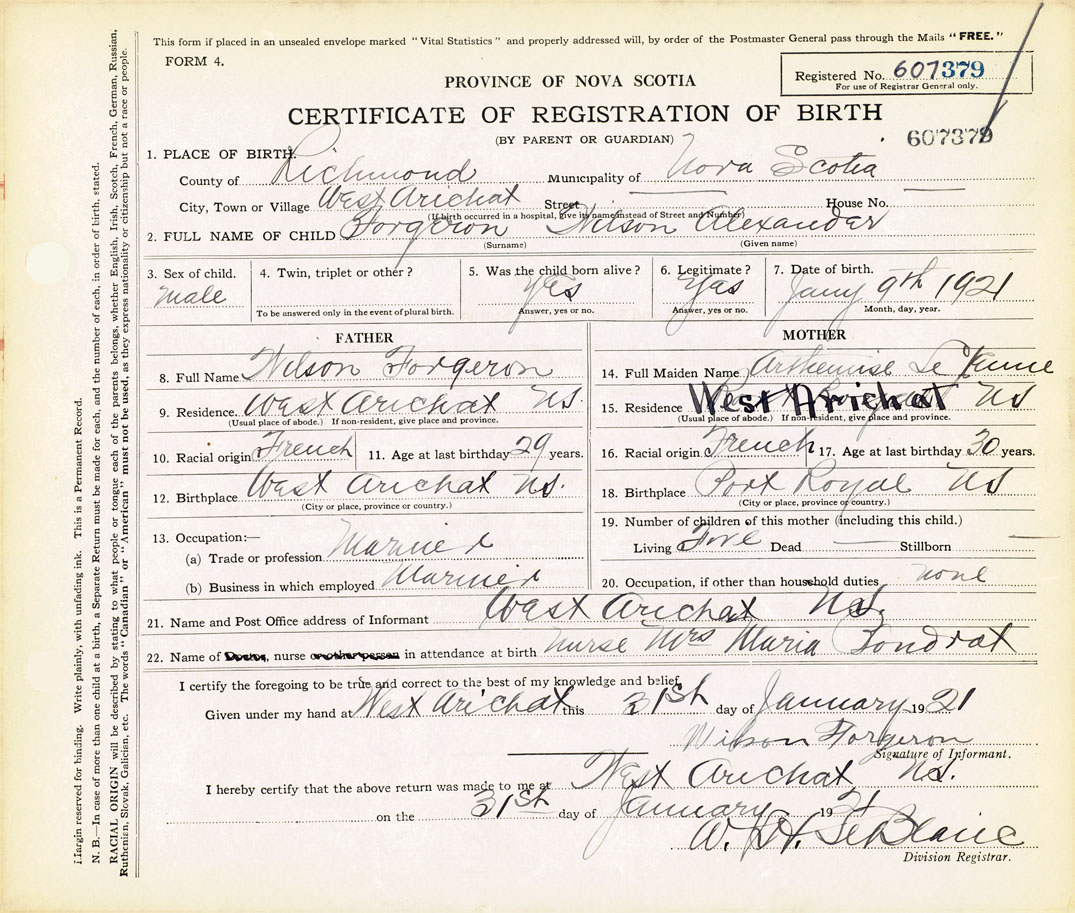 This form if placed in an unsealed envelope marked "Vital Statistics" and properly addressed will, by order of the Postmaster General pass through the Mails "FREE."
FORM 4.
Registered No. 607379
For use of Registrar General only.
PROVINCE OF NOVA SCOTIA
CERTIFICATE OF REGISTRATION OF BIRTH
(BY PARENT OR GUARDIAN)
607379
1. PLACE OF BIRTH.
County of Richmond Municipality of Nova Scotia
City, Town or Village West Arichat Street House No.
(If birth occurred in a hospital, give its name instead of Street and Number)
2. FULL NAME OF CHILD Forgeron Wilson Alexander
(Surname) (Given name)
3. Sex of child. male
4. Twin, triplet or other?
To be answered only in the event of plural birth.
5. Was the child born alive? Yes
Answer, yes or no.
6. Legitimate? Yas
Answer, yes or no.
7. Date of birth. Jany 9th 1921
Month, day, year.
FATHER
8. Full Name Wilson Forgeron
9. Residence. West Arichat NS.
(Usual place of abode.) If non-resident, give place and province.
10. Racial origin French 11. Age at last birthday 29 years.
12. Birthplace West Arichat NS.
(City or place, province or country.)
13. Occupation:—
(a) Trade or profession Marine
(b) Business in which employed Marine
MOTHER
14. Full Maiden Name Arthemise Le
15. Residence West Arichat NS
(Usual place of abode.) If non-resident, give place and province.
16. Racial origin French 17. Age at last birthday 30 years.
18. Birthplace Port Royal NS
(City or place, province or country.)
19. Number of children of this mother (including this child.)
Living Dead — Stillborn —
20. Occupation, if other than household duties none
21. Name and Post Office address of Informant West Arichat NS.
22. Name of Doctor, nurse or other person in attendance at birth nurse Mrs Maria
I certify the foregoing to be true and correct to the best of my knowledge and belief.
Given under my hand at West Arichat this 31st day of January 1921
Wilson Forgeron
Signature of Informant.
I hereby certify that the above return was made to me at West Arichat NS.
on the 31st day of January 1921
W. H. LeBlanc
Division Registrar.
Margin reserved for binding. Write plainly, with unfading ink. This is a Permanent Record.
N. B.—In case of more than one child at a birth, a Separate Return must be made for each, and the number of each, in order of birth, stated.
RACIAL ORIGIN will be described by stating to what people or tongue each of the parents belongs, whether English, Irish, Scotch, French, German, Russian,
Ruthenian, Slovak, Galician, etc. The words "Canadian" or "American" must not be used, as they express nationality or citizenship but not a race or people.